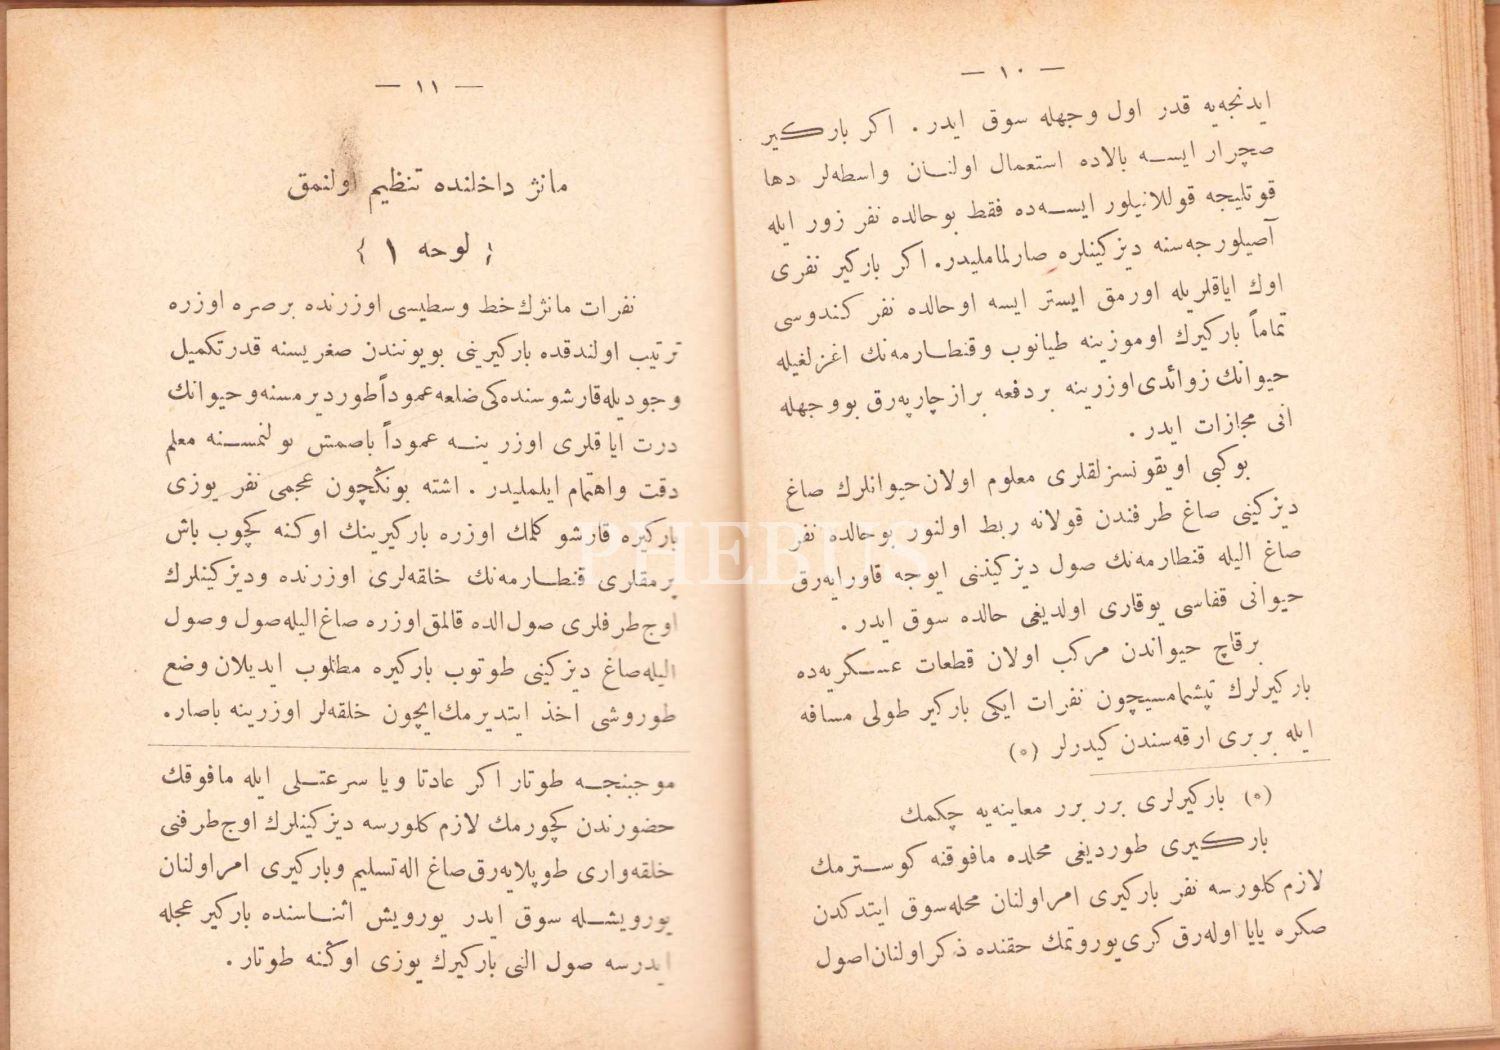 — ١٠ —
ایدنجه‌یه قدر اول وجهله سوق ایدر. اکر بارکیر
صچرار ایسه بالاده استعمال اولنان واسطه‌لر دها
قوتلیجه قوللانیلور ایسه‌ده فقط بوحالده نفر زور ایله
آصیلورجه‌سنه دیزکینلره صارلماملیدر. اکر بارکیر نفری
اوك ایاقلریله اورمق ایستر ایسه اوحالده نفر کندوسی
تماماً بارکیرك اوموزینه طیانوب وقنطارمه‌نك اغزلغیله
حیوانك زوائدی اوزرینه بردفعه براز چارپه‌رق بووجهله
انی مجازات ایدر.
بوکبی اویقونسزلقلری معلوم اولان حیوانلرك صاغ
دیزکینی صاغ طرفندن قولانه ربط اولنور بوحالده نفر
صاغ الیله قنطارمه‌نك صول دیزکیننی ایوجه قاورایه‌رق
حیوانی قفاسی یوقاری اولدیغی حالده سوق ایدر.
برقاچ حیواندن مرکب اولان قطعات عسکریه‌ده
بارکیرلرك تپشمامسیچون نفرات ایکی بارکیر طولی مسافه
ایله بربری ارقه‌سندن کیدرلر (٥)
(٥) بارکیرلری برر برر معاینه‌یه چکمك
بارکیری طوردیغی محلده مافوقنه کوسترمك
لازم کلورسه نفر بارکیری امر اولنان محله سوق ایتدکدن
صکره یایا اوله‌رق کری یوروتمك حقنده ذکر اولنان اصول
— ١١ —
مانژ داخلنده تنظیم اولنمق
{ لوحه ١ }
نفرات مانژك خط وسطیسی اوزرنده برصره اوزره
ترتیب اولندقده بارکیرینی بویونندن صغریسنه قدر تکمیل
وجودیله قارشوسنده‌کی ضلعه عموداً طوردیرمسنه وحیوانك
درت ایاقلری اوزرینه عموداً باصمش بولنمسنه معلم
دقت واهتمام ایلملیدر. اشته بونکچون عجمی نفر یوزی
بارکیره قارشو کلمك اوزره بارکیرینك اوکنه کچوب باش
پرمقلری قنطارمه‌نك خلقه‌لری اوزرنده ودیزکینلرك
اوج طرفلری صول الده قالمق اوزره صاغ الیله صول وصول
الیله صاغ دیزکینی طوتوب بارکیره مطلوب ایدیلان وضع
طوروشی اخذ ایتدیرمك ایچون خلقه‌لر اوزرینه باصار.
موجبنجه طوتار اکر عادتا ویا سرعتلی ایله مافوقك
حضورندن کچورمك لازم کلورسه دیزکینلرك اوج طرفنی
خلقه‌واری طوپلایه‌رق صاغ اله تسلیم وبارکیری امر اولنان
یورویشله سوق ایدر یورویش اثناسنده بارکیر عجله
ایدرسه صول النی بارکیرك یوزی اوکنه طوتار.
PHEBUS